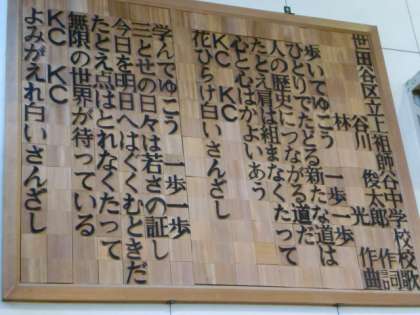 世田谷区立上祖師谷中学校校歌
谷川 俊太郎 作詞
林 光 作曲
歩いてゆこう 一歩一歩
ひとりでたどる新たな道は
人の歴史につながる道だ
たとえ肩は組まなくたって
心と心はかよいあう
KC KC
花ひらけ白いさんざし
学んでゆこう 一歩一歩
三とせの日々は若さの証し
今日を明日へはぐくむときだ
たとえ点はとれなくたって
無限の世界が待っている
KC KC
よみがえれ白いさんざし